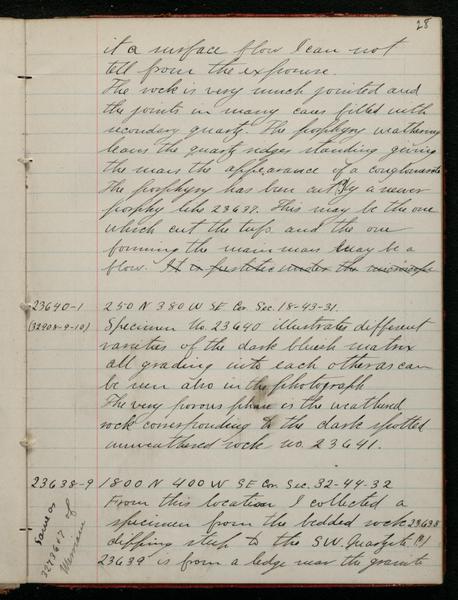 28
it a surface flow I can not
tell from the exposure.
The rock is very much jointed and
the joints in many cases filled with
secondary quartz. The porphyry weathering
leaves the quartz ridges standing giving
the mass the appearance of a conglomerate
The porphyry has been cut by a newer
porphy like 23637. This may be the one
which cut the tufs and the one
forming the main mass may be a
flow. It is felsitic under the microscope
23640-1 250 N 380 W SE Cor. Sec. 18-43-31.
(32908-9-10) Specimen No. 23640 illustrates different
varieties of the dark bluish matrix
all grading into each other as can
be seen also in the photograph
The very porous phase is the weathered
rock corresponding to the dark spotted
unweathered rock no. 23641.
23638-9 1800 N 400 W SE Cor. Sec. 32-44-32
From this location I collected a
specimen from the bedded rock 23638
dipping steep to the S.W. Quartzite (?)
23639 is from a ledge near the granite
Same as
of